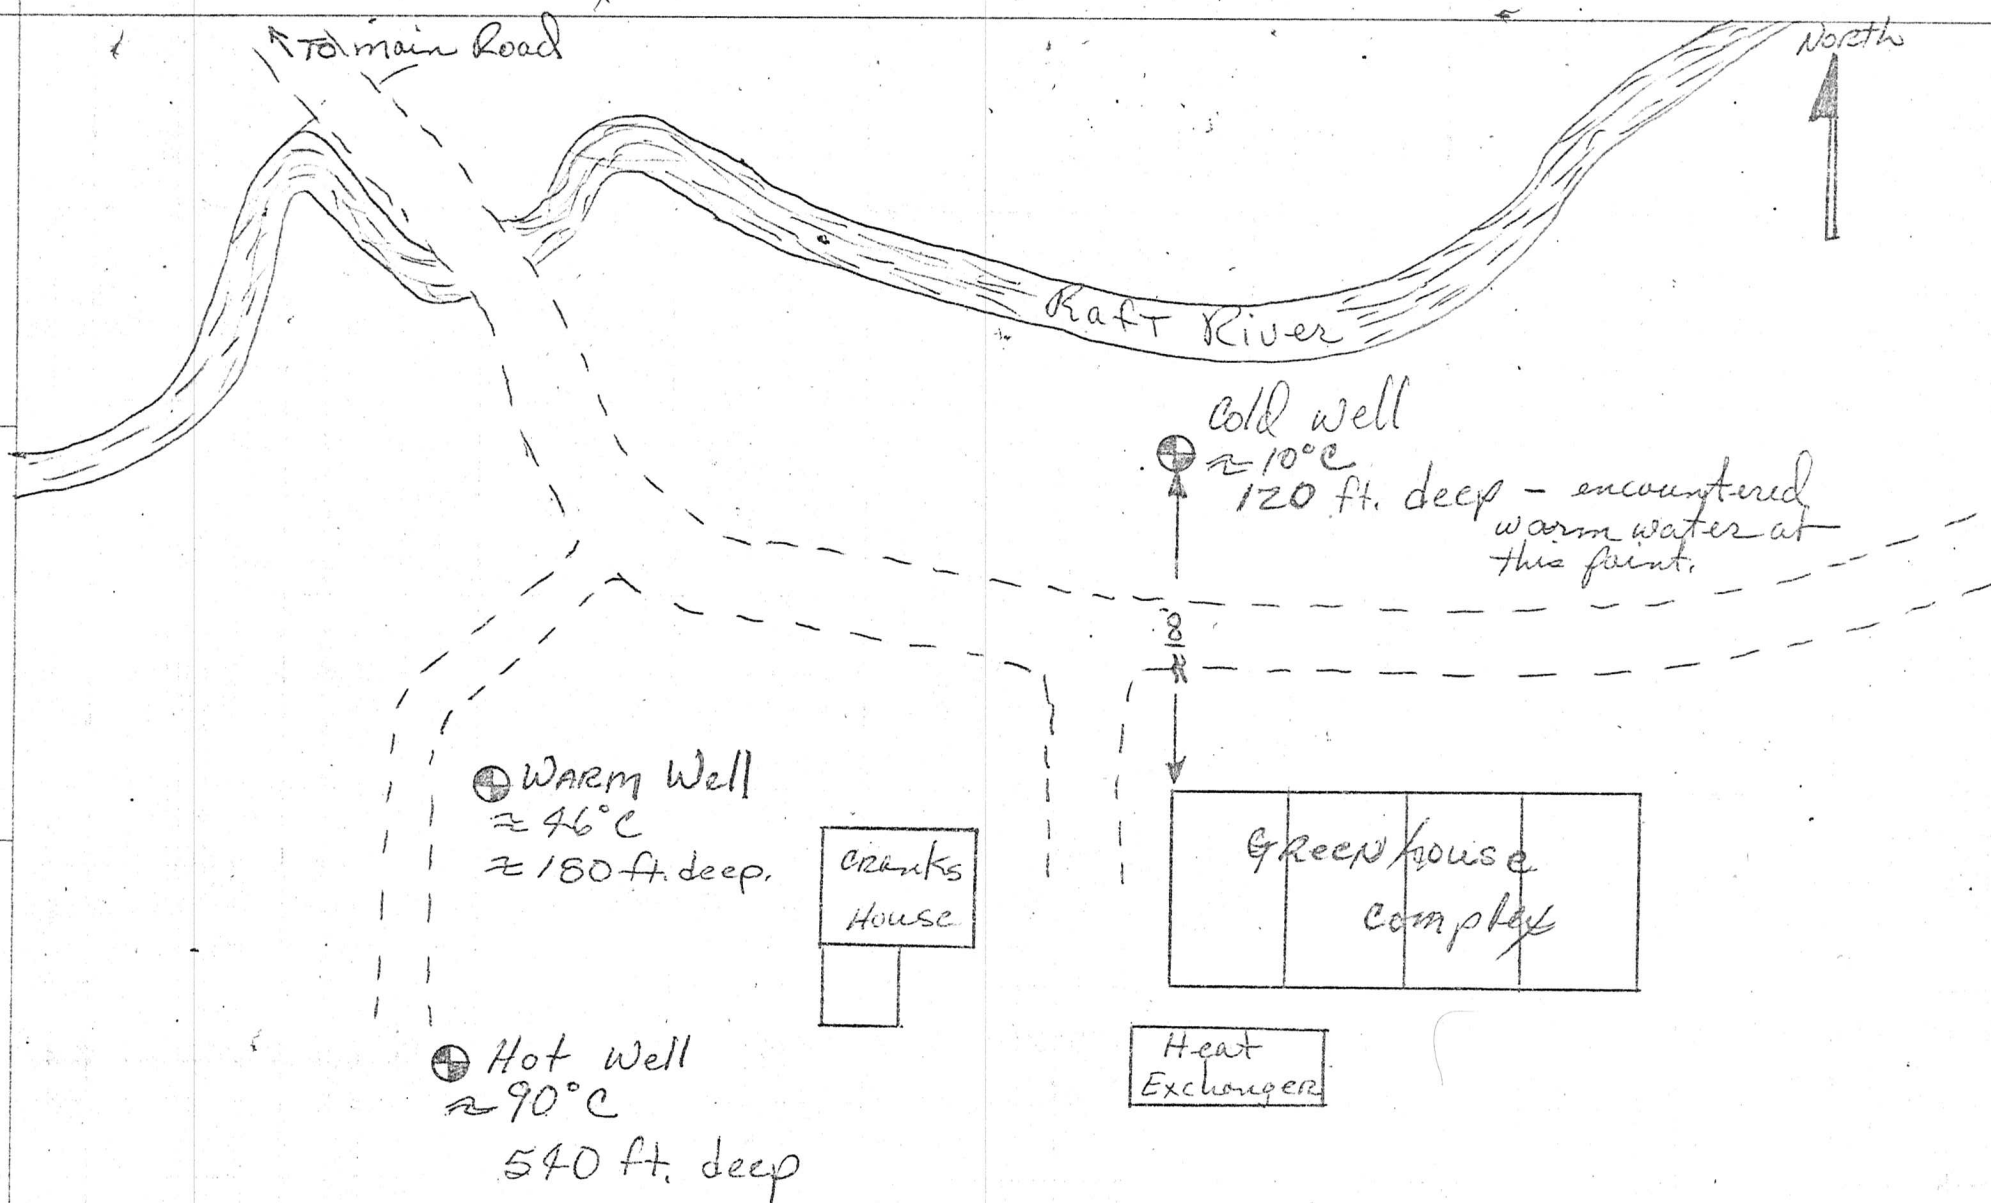 To main Road
North
Raft River
Cold well
≈ 10°C
120 ft. deep - encountered
warm water at
this point.
WARM Well
≈ 46°C
≈ 180 ft. deep.
CRANKS
HOUSE
GREENHOUSE
Complex
Hot Well
≈ 90°C
540 ft. deep
Heat
Exchanger